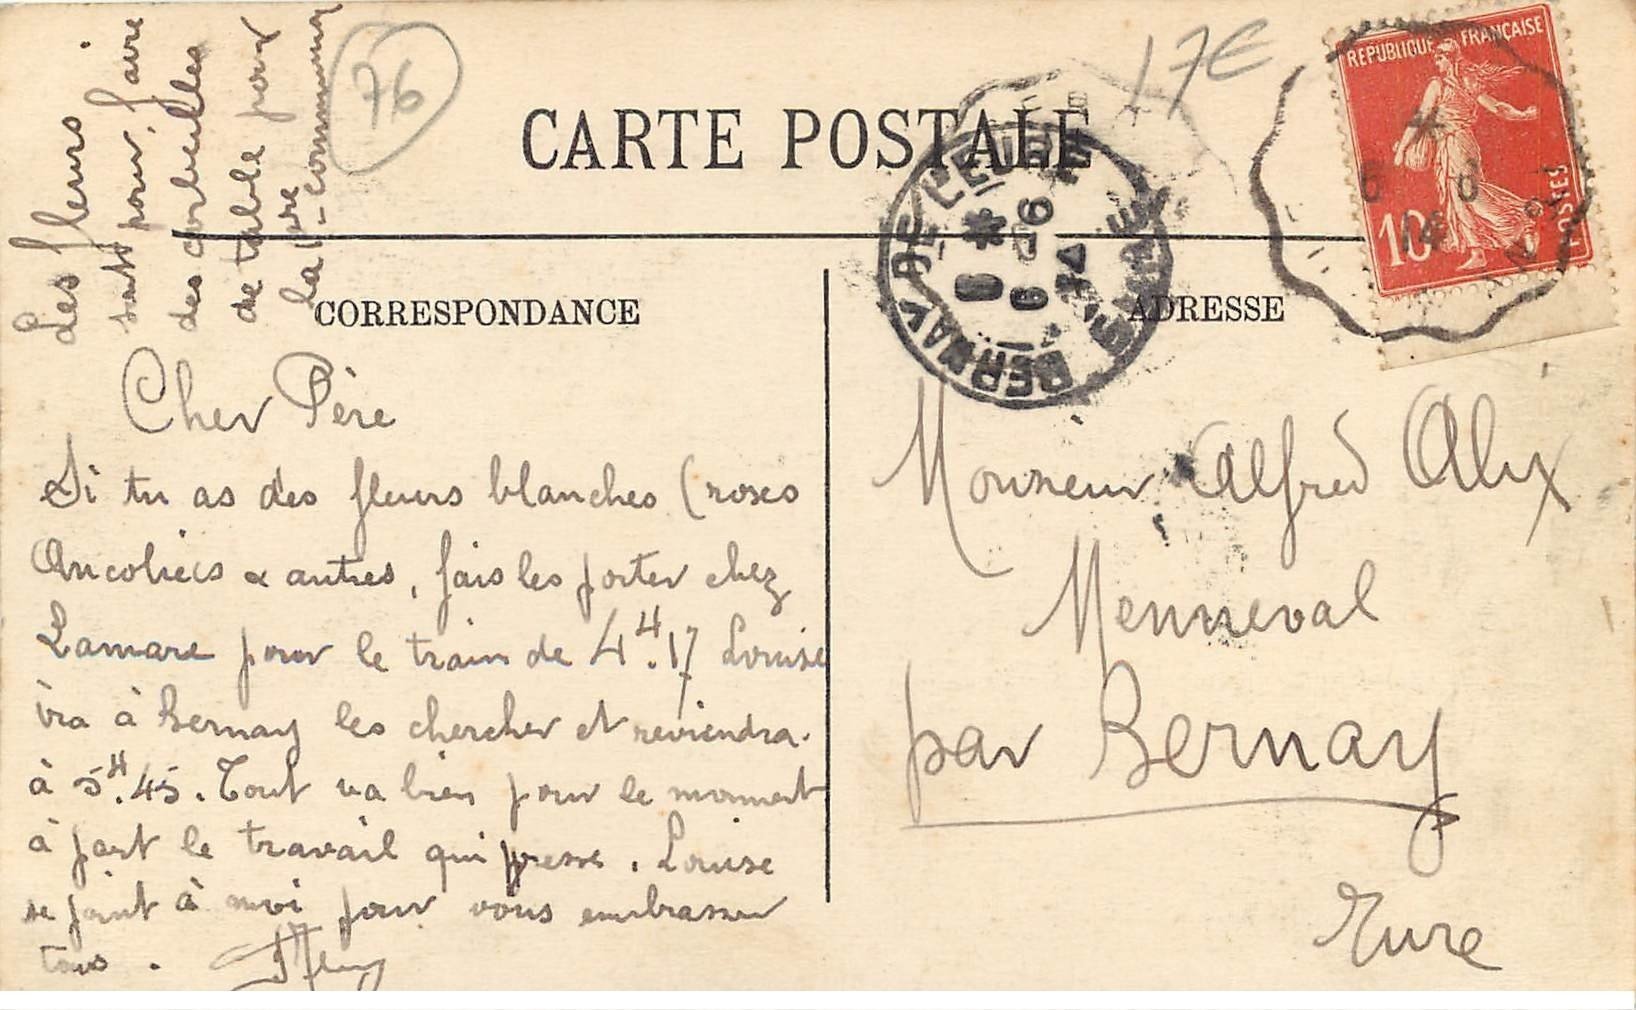 Les fleurs
sont pour faire
des corbeilles
de table pour
la 1ère communion
76
17€
CARTE POSTALE
REPUBLIQUE FRANÇAISE
10
POSTES
BERNAY DE L'EURE
CORRESPONDANCE
ADRESSE
Cher Père
Si tu as des fleurs blanches (roses
Ancolies & autres, fais les porter chez
Lamare pour le train de 4H.17 Louise
ira à Bernay les chercher et reviendra
à 5H.45. Tout va bien pour le moment
à part le travail qui presse. Louise
se joint à moi pour vous embrasser
tous.
Monsieur Alfred Alix
Menneval
par Bernay
Eure